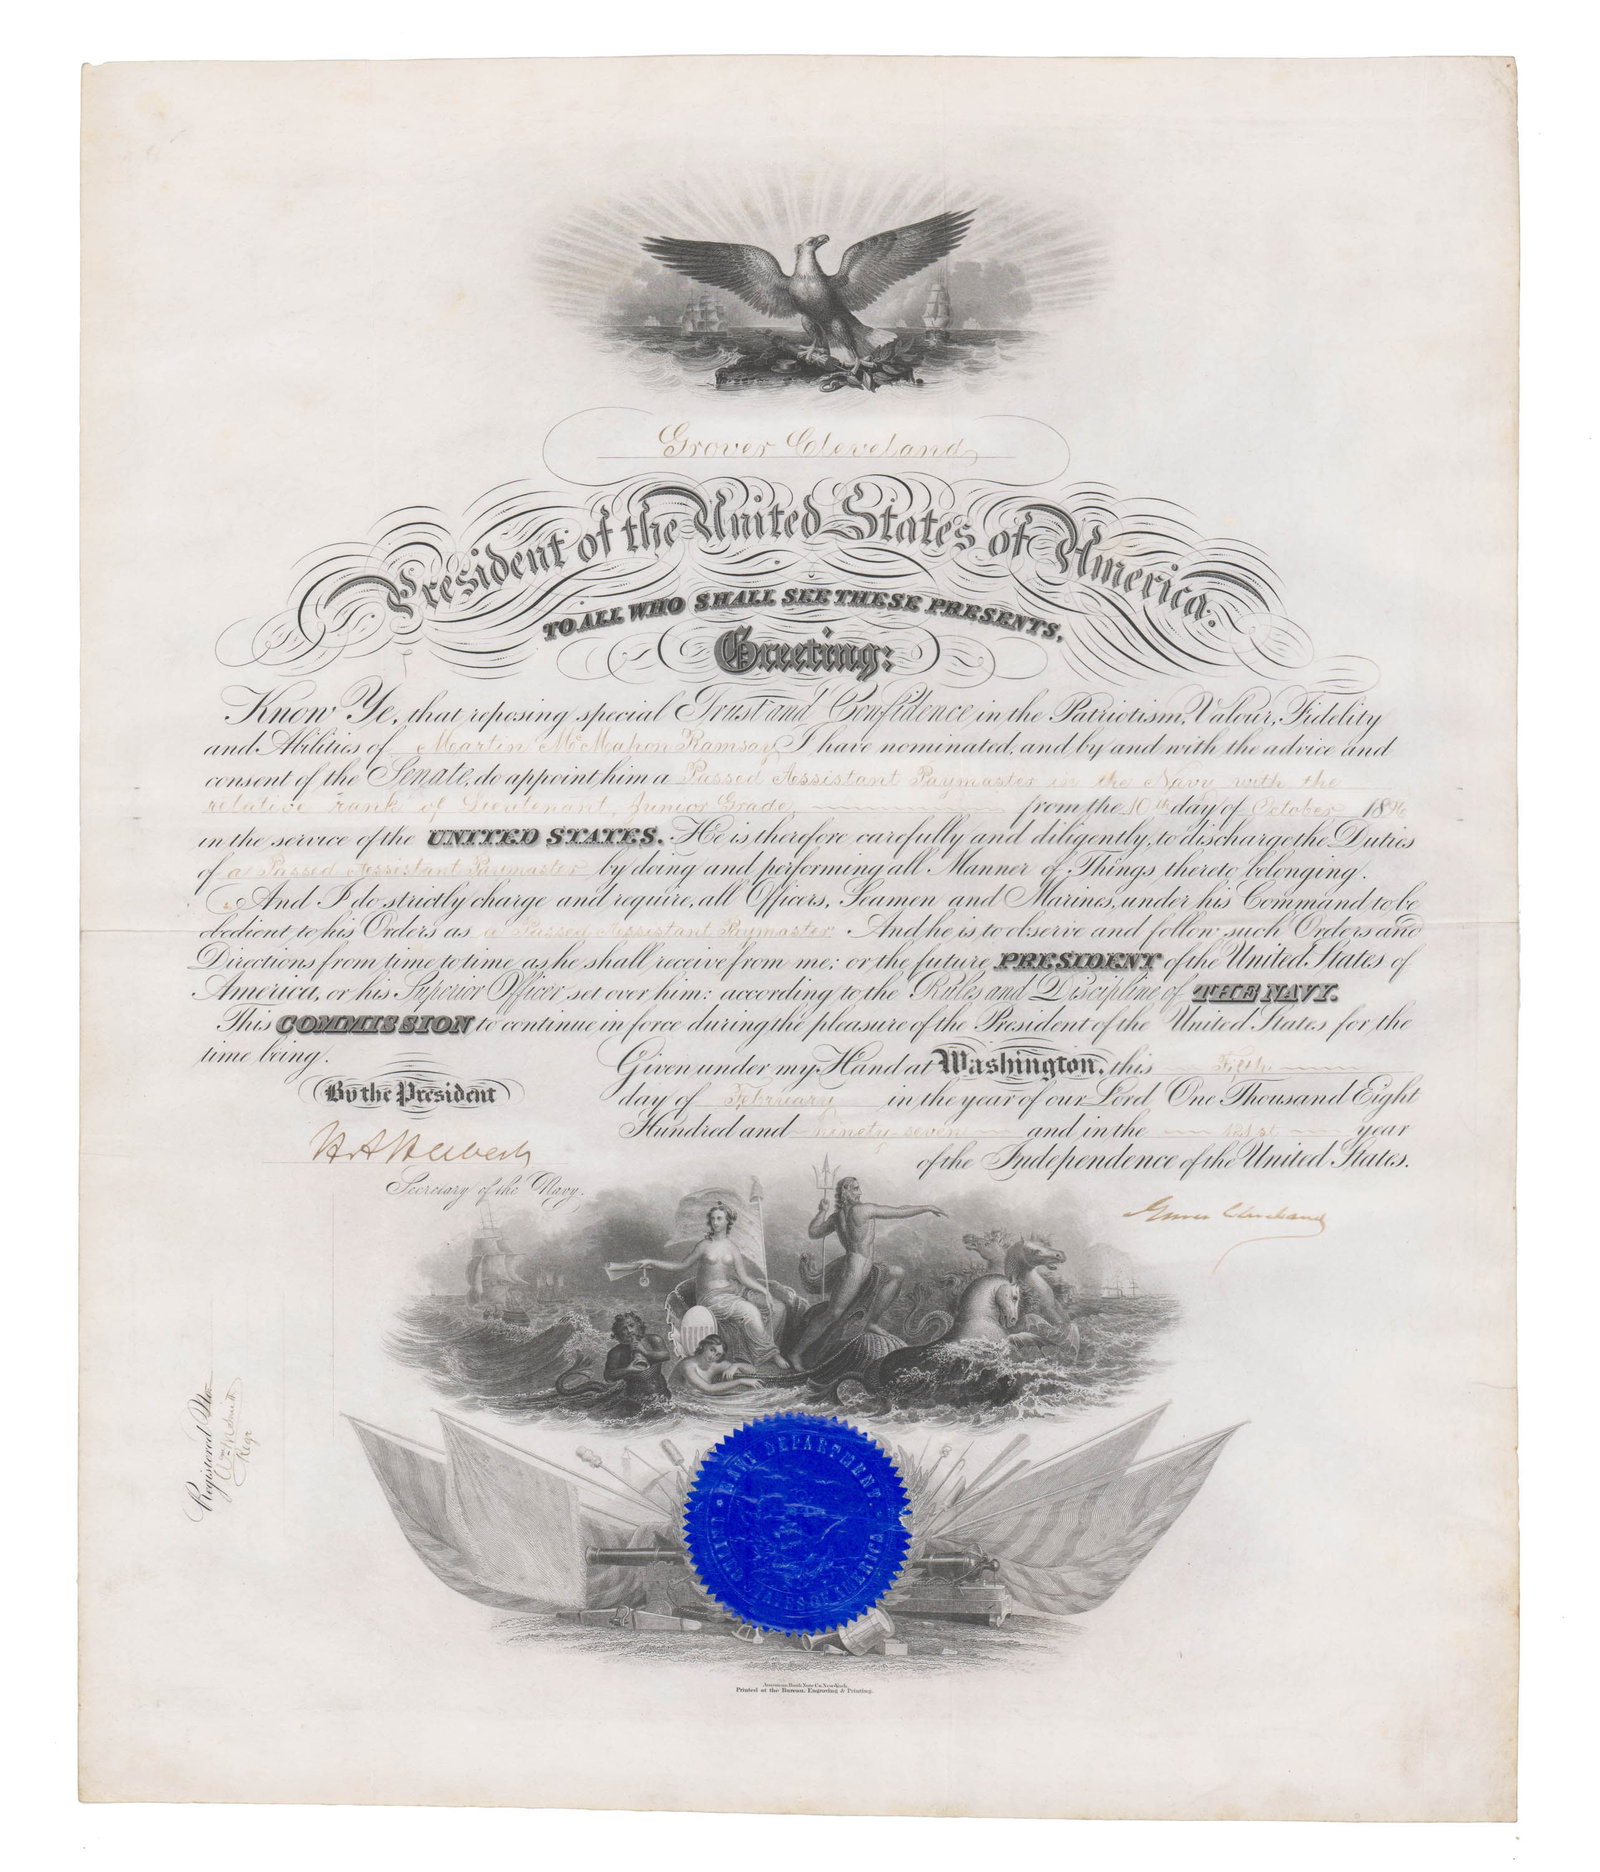 Grover Cleveland
President of the United States of America.
TO ALL WHO SHALL SEE THESE PRESENTS,
Greeting:
Know Ye, that reposing special Trust and Confidence in the Patriotism, Valour, Fidelity
and Abilities of Martin McMahon Ramsay, I have nominated, and by and with the advice and
consent of the Senate, do appoint him a Passed Assistant Paymaster in the Navy with the
relative rank of Lieutenant, Junior Grade, from the 10th day of October 1896
in the service of the UNITED STATES. He is therefore carefully and diligently, to discharge the Duties
of a Passed Assistant Paymaster by doing and performing all Manner of Things thereto belonging.
And I do strictly charge and require, all Officers, Seamen and Marines, under his Command to be
obedient to his Orders as a Passed Assistant Paymaster And he is to observe and follow such Orders and
Directions from time to time as he shall receive from me; or the future PRESIDENT of the United States of
America, or his Superior Officer set over him: according to the Rules and Discipline of THE NAVY.
This COMMISSION to continue in force during the pleasure of the President of the United States for the
time being.
Given under my Hand at Washington, this Fifth
day of February in the year of our Lord One Thousand Eight
Hundred and ninety-seven and in the 121st year
of the Independence of the United States.
By the President
H A Herbert
Secretary of the Navy.
Grover Cleveland
Registered No.
Wm M Smith
Regr
NAVY DEPARTMENT.
UNITED STATES OF AMERICA
American Bank Note Co. New York.
Printed at the Bureau, Engraving & Printing.